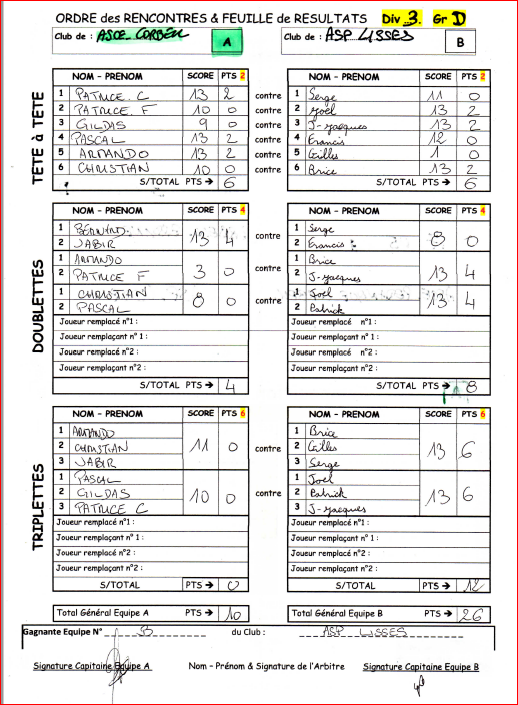 ORDRE des RENCONTRES & FEUILLE de RESULTATS Div 3. Gr D
Club de : ASCE CORBEIL A Club de : ASP LISSES B
TETE à TETE
NOM - PRENOM SCORE PTS 2 NOM - PRENOM SCORE PTS 2
1 PATRICE. C 13 2 contre 1 Serge 11 0
2 PATRICE. F 10 0 contre 2 Joël 13 2
3 GILDAS 9 0 contre 3 J-Jacques 13 2
4 PASCAL 13 2 contre 4 Francis 12 0
5 ARMANDO 13 2 contre 5 Gilles 1 0
6 CHRISTIAN 10 0 contre 6 Brice 13 2
S/TOTAL PTS → 6 S/TOTAL PTS → 6
DOUBLETTES
NOM - PRENOM SCORE PTS 4 NOM - PRENOM SCORE PTS 4
1 BERNARD 13 4 contre 1 Serge 8 0
2 JABIR 2 Francis
1 ARMANDO 3 0 contre 1 Brice 13 4
2 PATRICE F 2 J-Jacques
1 CHRISTIAN 8 0 contre 1 Joël 13 4
2 PASCAL 2 Patrick
Joueur remplacé n°1 : Joueur remplacé n°1 :
Joueur remplaçant n° 1 : Joueur remplaçant n° 1 :
Joueur remplacé n°2 : Joueur remplacé n°2 :
Joueur remplaçant n°2 : Joueur remplaçant n°2 :
S/TOTAL PTS → 4 S/TOTAL PTS → 8
TRIPLETTES
NOM - PRENOM SCORE PTS 6 NOM - PRENOM SCORE PTS 6
1 ARMANDO 1 Brice
2 CHRISTIAN 11 0 contre 2 Gilles 13 6
3 JABIR 3 Serge
1 PASCAL 1 Joël
2 GILDAS 10 0 contre 2 Patrick 13 6
3 PATRICE C 3 J-Jacques
Joueur remplacé n°1 : Joueur remplacé n°1 :
Joueur remplaçant n° 1 : Joueur remplaçant n° 1 :
Joueur remplacé n°2 : Joueur remplacé n°2 :
Joueur remplaçant n°2 : Joueur remplaçant n°2 :
S/TOTAL PTS → 0 S/TOTAL PTS → 12
Total Général Equipe A PTS → 10 Total Général Equipe B PTS → 26
Gagnante Equipe N° B du Club : ASP LISSES
Signature Capitaine Equipe A Nom - Prénom & Signature de l'Arbitre Signature Capitaine Equipe B